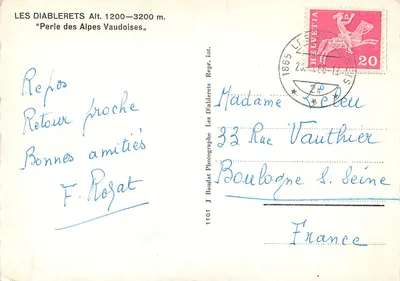 LES DIABLERETS Alt. 1200—3200 m.
"Perle des Alpes Vaudoises„
Repos
Retour proche
Bonnes amitiés
F. Rozat
1101 J Baudat Photographe Les Diablerets Repr. int.
HELVETIA
20
1865
Madame
33 Rue Vauthier
Boulogne s. Seine
France